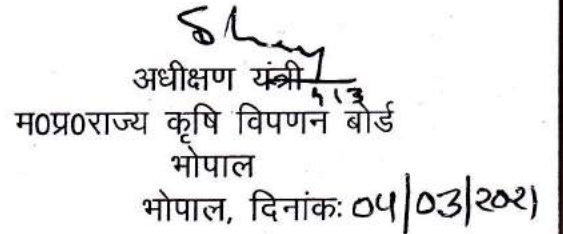 अधीक्षण यंत्री
म0प्र0राज्य कृषि विपणन बोर्ड
भोपाल
भोपाल, दिनांकः 04/03/2021